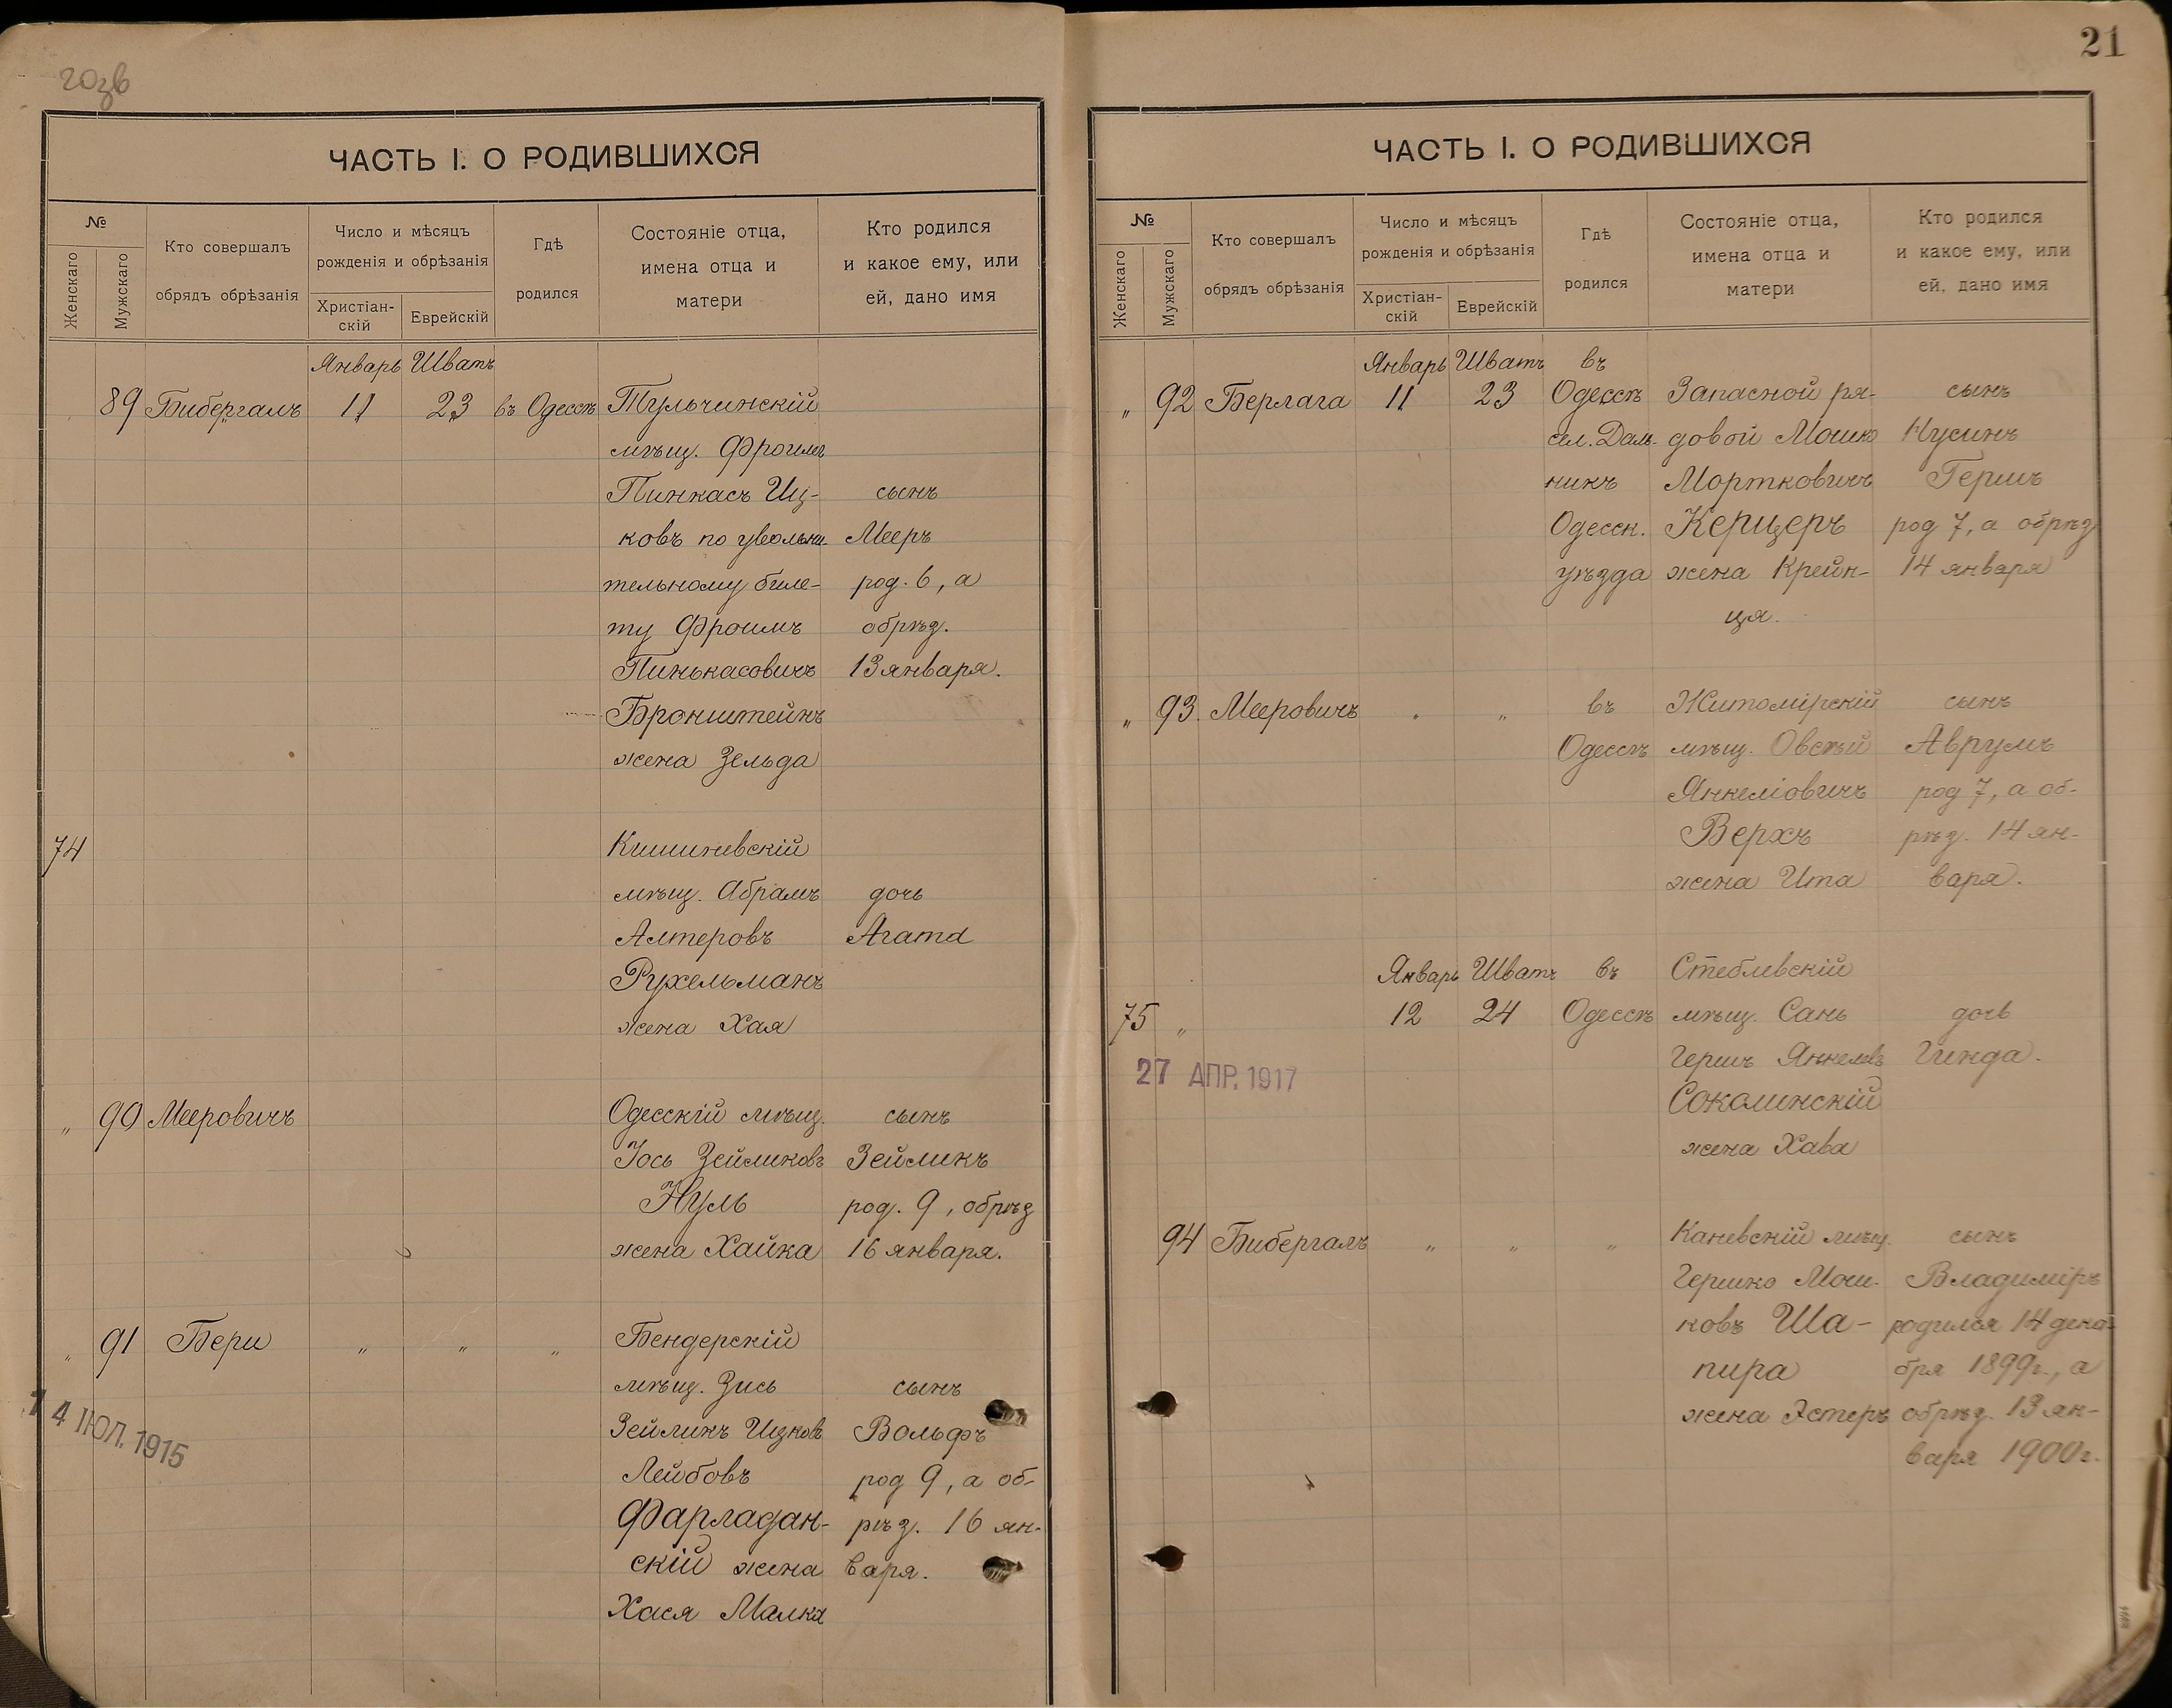 20зв
ЧАСТЬ I. О РОДИВШИХСЯ
№
Женскаго
Мужскаго
Кто совершалъ
обрядъ обрѣзанія
Число и мѣсяцъ
рожденія и обрѣзанія
Христіан-
скій
Еврейскій
Гдѣ
родился
Состояніе отца,
имена отца и
матери
Кто родился
и какое ему, или
ей, дано имя
Январь Шватъ
89 Бибергалъ 11 23 въ Одессѣ Тульчинскій
мѣщ. Фроимъ
Пинкасъ Иц- сынъ
ковъ по увольни- Мееръ
тельному биле- род. 6, а
ту Фроимъ обрѣз.
Пинькасовичъ 13 января.
Бронштейнъ
жена Зельда
74 Кишиневскій
мѣщ. Абрамъ дочь
Алтеровъ Агата
Рухельманъ
жена Хая
„ 90 Мееровичъ Одесскій мѣщ. сынъ
Іось Зейликовъ Зейликъ
Нуль род. 9, обрѣз
жена Хайка 16 января.
„ 91 Бери „ „ „ Бендерскій
мѣщ. Зись сынъ
Зейликъ Ицковъ Вольфъ
Лейбовъ род 9, а об-
Фарладан- рѣз. 16 ян-
скій жена варя.
Хася Малка
14 ІЮЛ. 1915
21
ЧАСТЬ I. О РОДИВШИХСЯ
№
Женскаго
Мужскаго
Кто совершалъ
обрядъ обрѣзанія
Число и мѣсяцъ
рожденія и обрѣзанія
Христіан-
скій
Еврейскій
Гдѣ
родился
Состояніе отца,
имена отца и
матери
Кто родился
и какое ему, или
ей, дано имя
Январь Шватъ въ
„ 92 Берлага 11 23 Одессѣ Запасной ря- сынъ
сел. Даль- довой Мошко Нусинъ
никъ Мортковичъ Гершъ
Одесск. Керцеръ род 7, а обрѣз
уѣзда жена Крейн- 14 января
ця.
„ 93. Мееровичъ „ „ въ Житомірскій сынъ
Одессѣ мѣщ. Овсѣй Аврумъ
Янкеліовичъ род 7, а об-
Верхъ рѣз. 14 ян-
жена Ита варя.
Январь Шватъ въ Стеблевскій
75 „ 12 24 Одессѣ мѣщ. Сань дочь
Гершъ Янкелевъ Гинда.
27 АПР. 1917
Соколинскій
жена Хава
94 Бибергалъ „ „ „ Каневскій мѣщ. сынъ
Гершко Мош- Владиміръ
ковъ Ша- родился 14 дека-
пира бря 1899г., а
жена Эстеръ обрѣз. 13 ян-
варя 1900г.